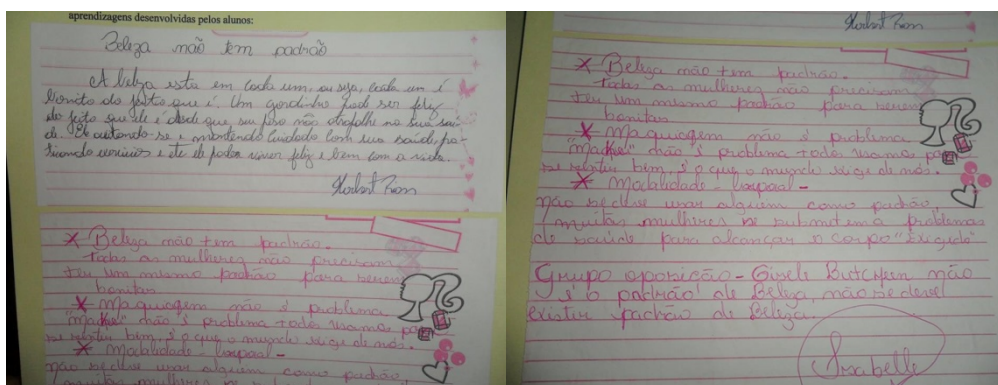 aprendizagens desenvolvidas pelos alunos:
Beleza não tem padrão
A beleza esta em cada um, ou seja, cada um é
bonito do jeito que é. Um gordinho pode ser feliz
do jeito que ele é desde que seu peso não atrapalhe na sua saú-
de. Se aceitando-se e mantendo cuidado com sua saúde, pra-
ticando exercícios e ele poder viver feliz e bem com a vida.
X Beleza não tem padrão.
Todas as mulheres não precisam
ter um mesmo padrão para serem
bonitas
X Maquiagem não é problema.
não é problema todas usamos pa
se sentir bem, é o que o mundo exige de nós.
X Modalidade - Corporal -
não se deve usar alguém como padrão,
muitas mulheres
X Beleza não tem padrão.
Todas as mulheres não precisam
ter um mesmo padrão para serem
bonitas
X Maquiagem não é problema.
não é problema todas usamos pa
se sentir bem, é o que o mundo exige de nós.
X Modalidade - Corporal -
não se deve usar alguém como padrão,
muitas mulheres se submetem a problemas
de saúde para alcançar o corpo "Exigido"
Grupo oposição - Gisele Butcheen não
é o padrão de Beleza, não se deve
existir padrão de Beleza.
Isabelle